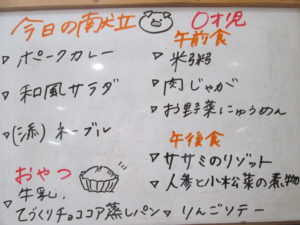 今日の献立
・ポークカレー
・和風サラダ
・(添)ネーブル
おやつ
・牛乳
・てづくりチョココア蒸しパン
0才児
午前食
・米粥
・肉じゃが
・お野菜にゅうめん
午後食
・ササミのリゾット
・人参と小松菜の煮物
・りんごソテー